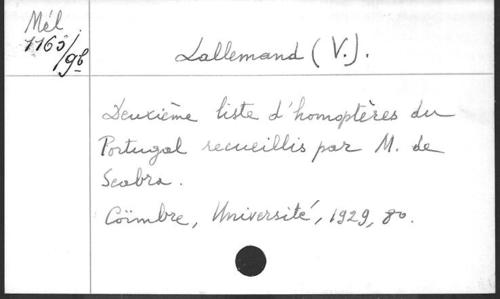 Mél.
1165/9b
Lallemand (V.).
Deuxième liste d'homoptères du
Portugal recueillis par M. de
Seabra.
Coïmbre, Université, 1929, 8o.